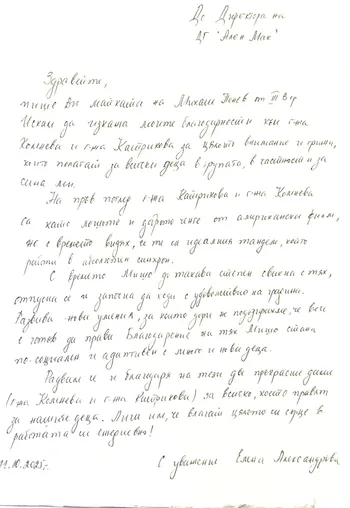 До Директора на
ДГ "Ален Мак"
Здравейте,
пише Ви майката на Михаил от III в гр
Искам да изкажа моите благодарности към г-жа
и г-жа за цялото внимание и грижи,
които полагат за всички деца в групата, в частност и за
сина ми.
На пръв поглед г-жа и г-жа
са като лошото и доброто ченге от американски филм,
но с времето видях, че те са идеалния тандем, който
работи в абсолютен синхрон.
С времето Мишо до такава степен свикна с тях,
отпусна се и започна да ходи с удоволствие на градина.
Развива нови умения, за които дори не подозирахме, че вече
е готов да прави. Благодарение на тях Мишо стана
по-социален и адаптивен с много и нови деца.
Радвам се и благодаря на тези две прекрасни дами
(г-жа и г-жа) за всичко, което правят
за нашите деца. Личи им, че влагат цялото си сърце в
работата си ежедневно!
10.2025г.
С уважение Елена Александрова